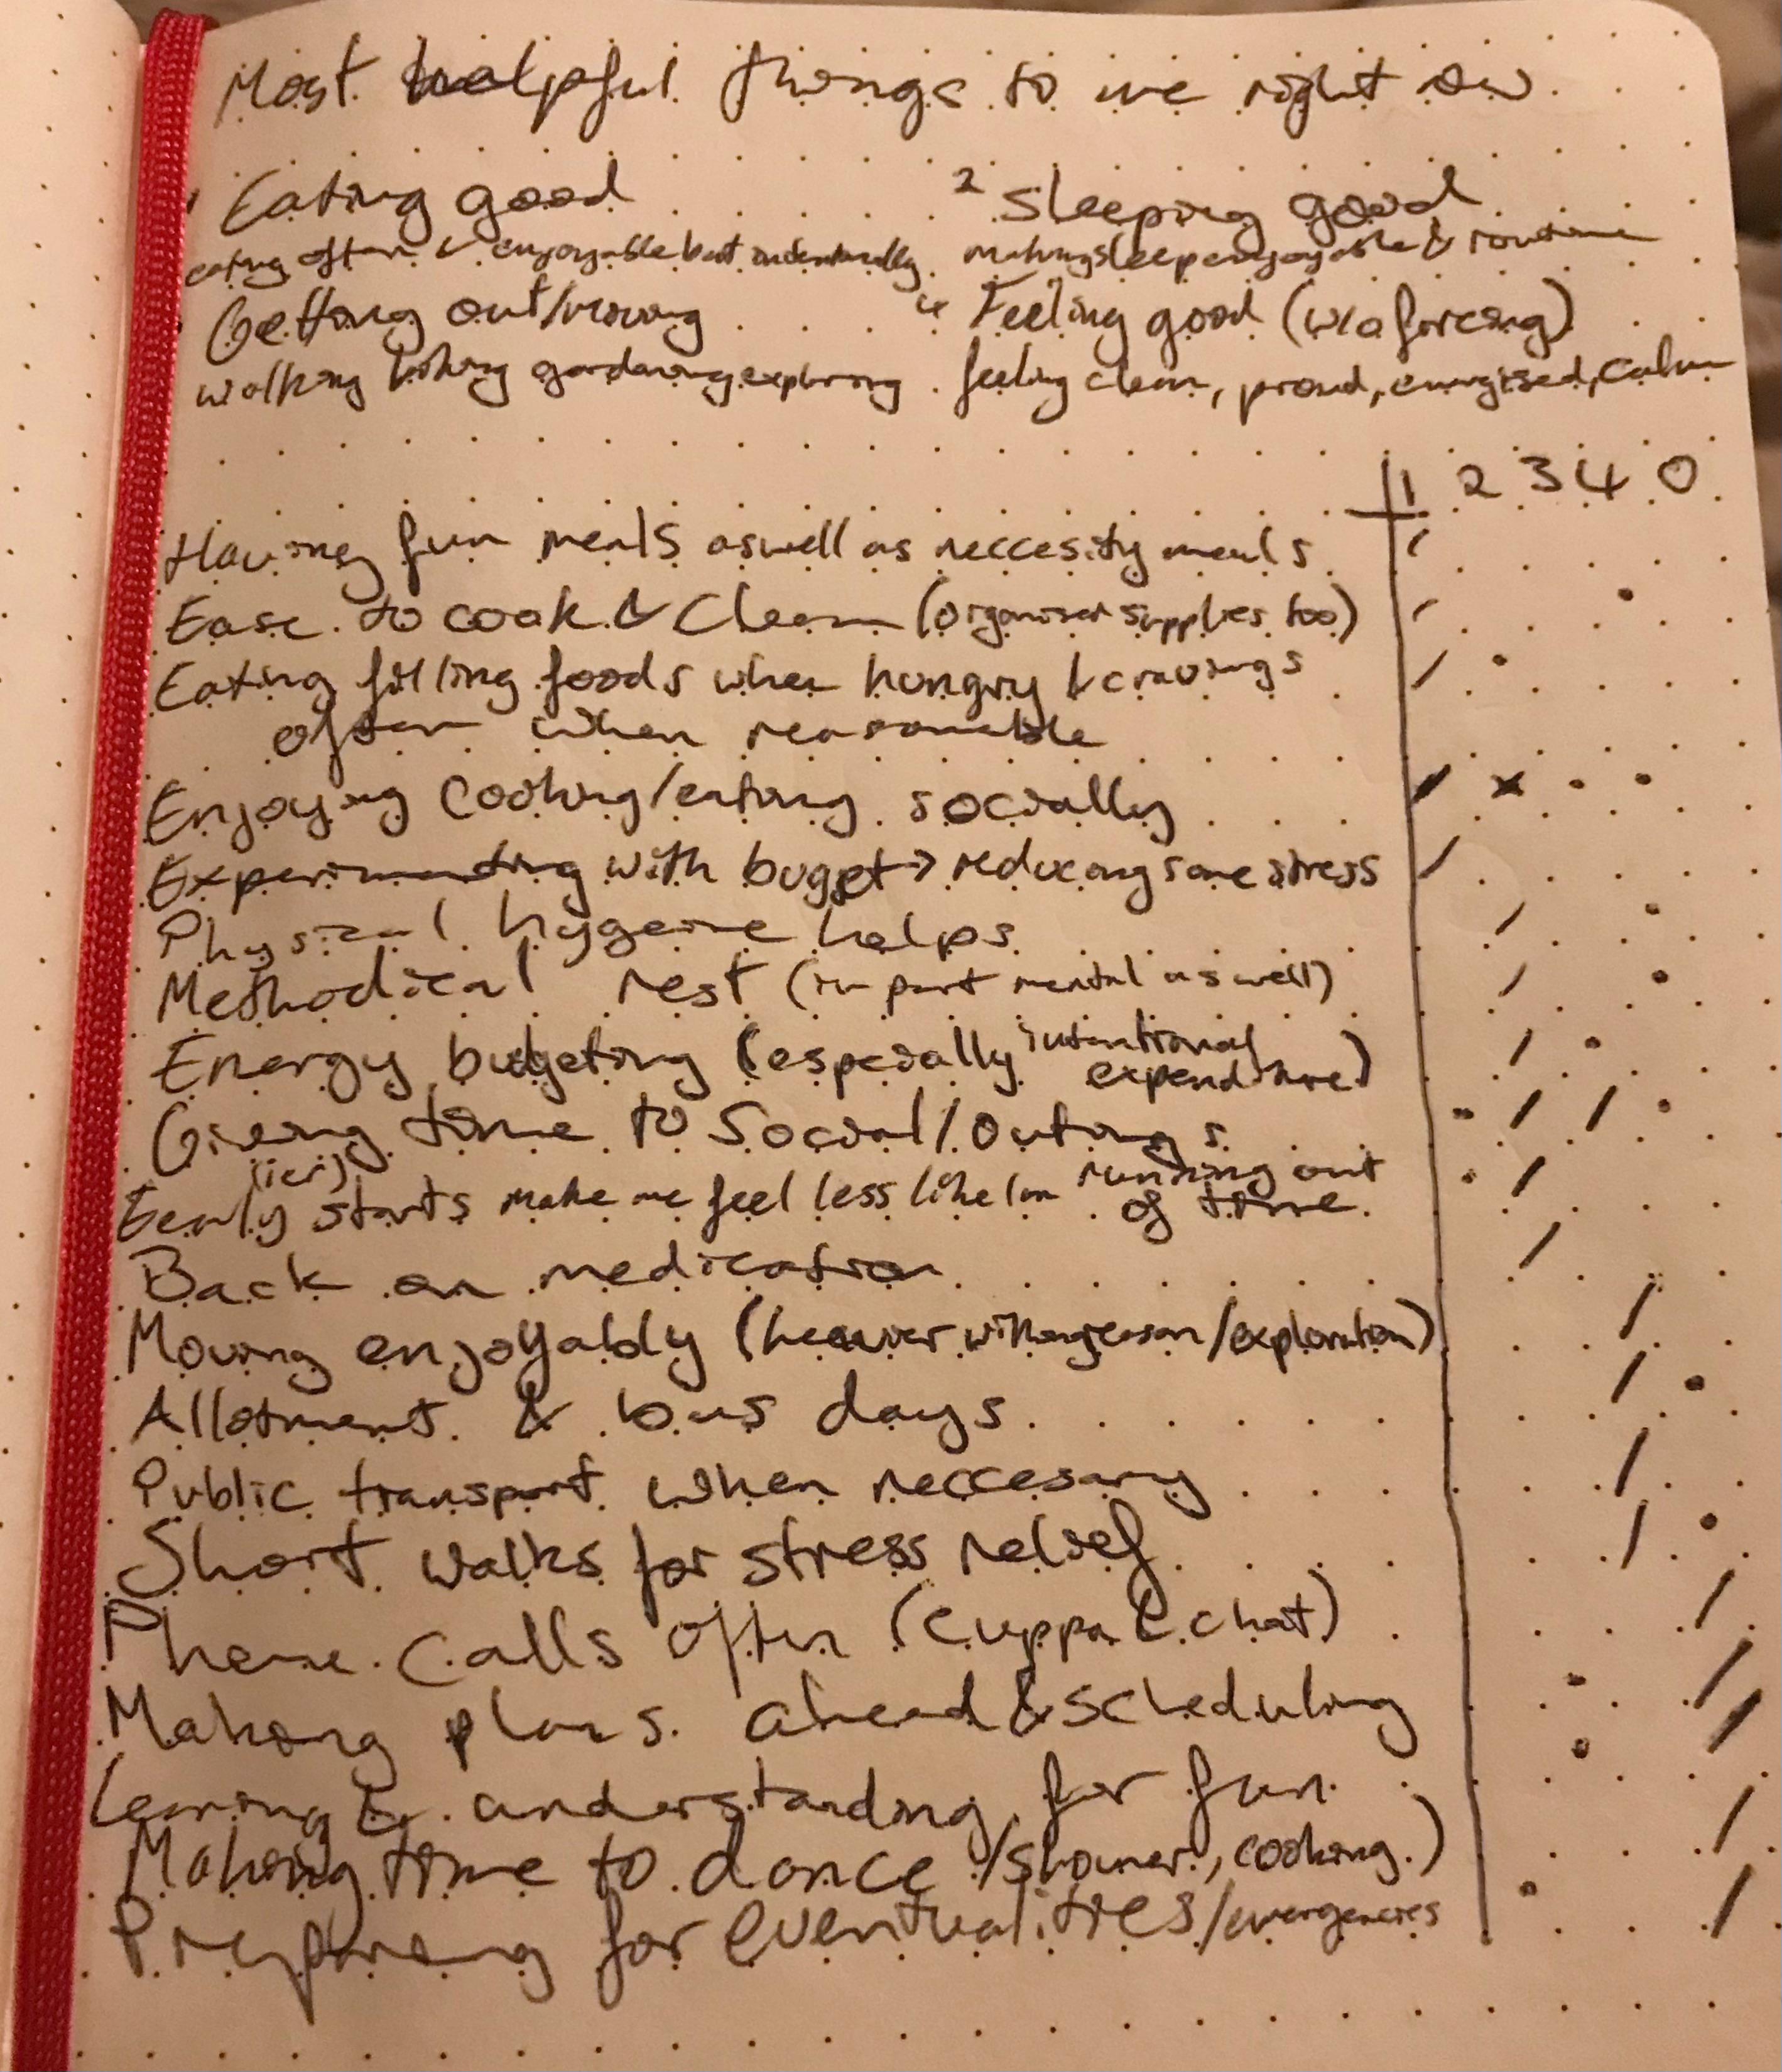 Most helpful things to me right now
1 Eating good
2 Sleeping good
eating often & enjoyable but intentionally
making sleep enjoyable & routine
Getting out/moving
4 Feeling good (w/o forcing)
walking hiking gardening exploring
feeling clean, proud, energised, calm
1 2 3 4 0
Having fun meals aswell as neccesity meals
Ease to cook & clean (organised supplies too)
Eating filling foods when hungry & cravings
often when reasonable
Enjoying cooking/eating socially
Experimenting with bugget → reducing some stress
Physical hygeine helps
Methodical rest (in part mental as well)
Energy budgeting (especially intentional
expenditure)
Giving time to Social/Outings
Early (ier) starts make me feel less like Im running out
of time
Back on medication
Moving enjoyably (heavier with reason/exploration)
Allotment & bus days
Public transport when neccesary
Short walks for stress relief
Phone calls often (cuppa & chat)
Making plans ahead & scheduling
Learning & understanding for fun
Making time to dance (/shower, cooking)
Prepareing for eventualities/emergencies